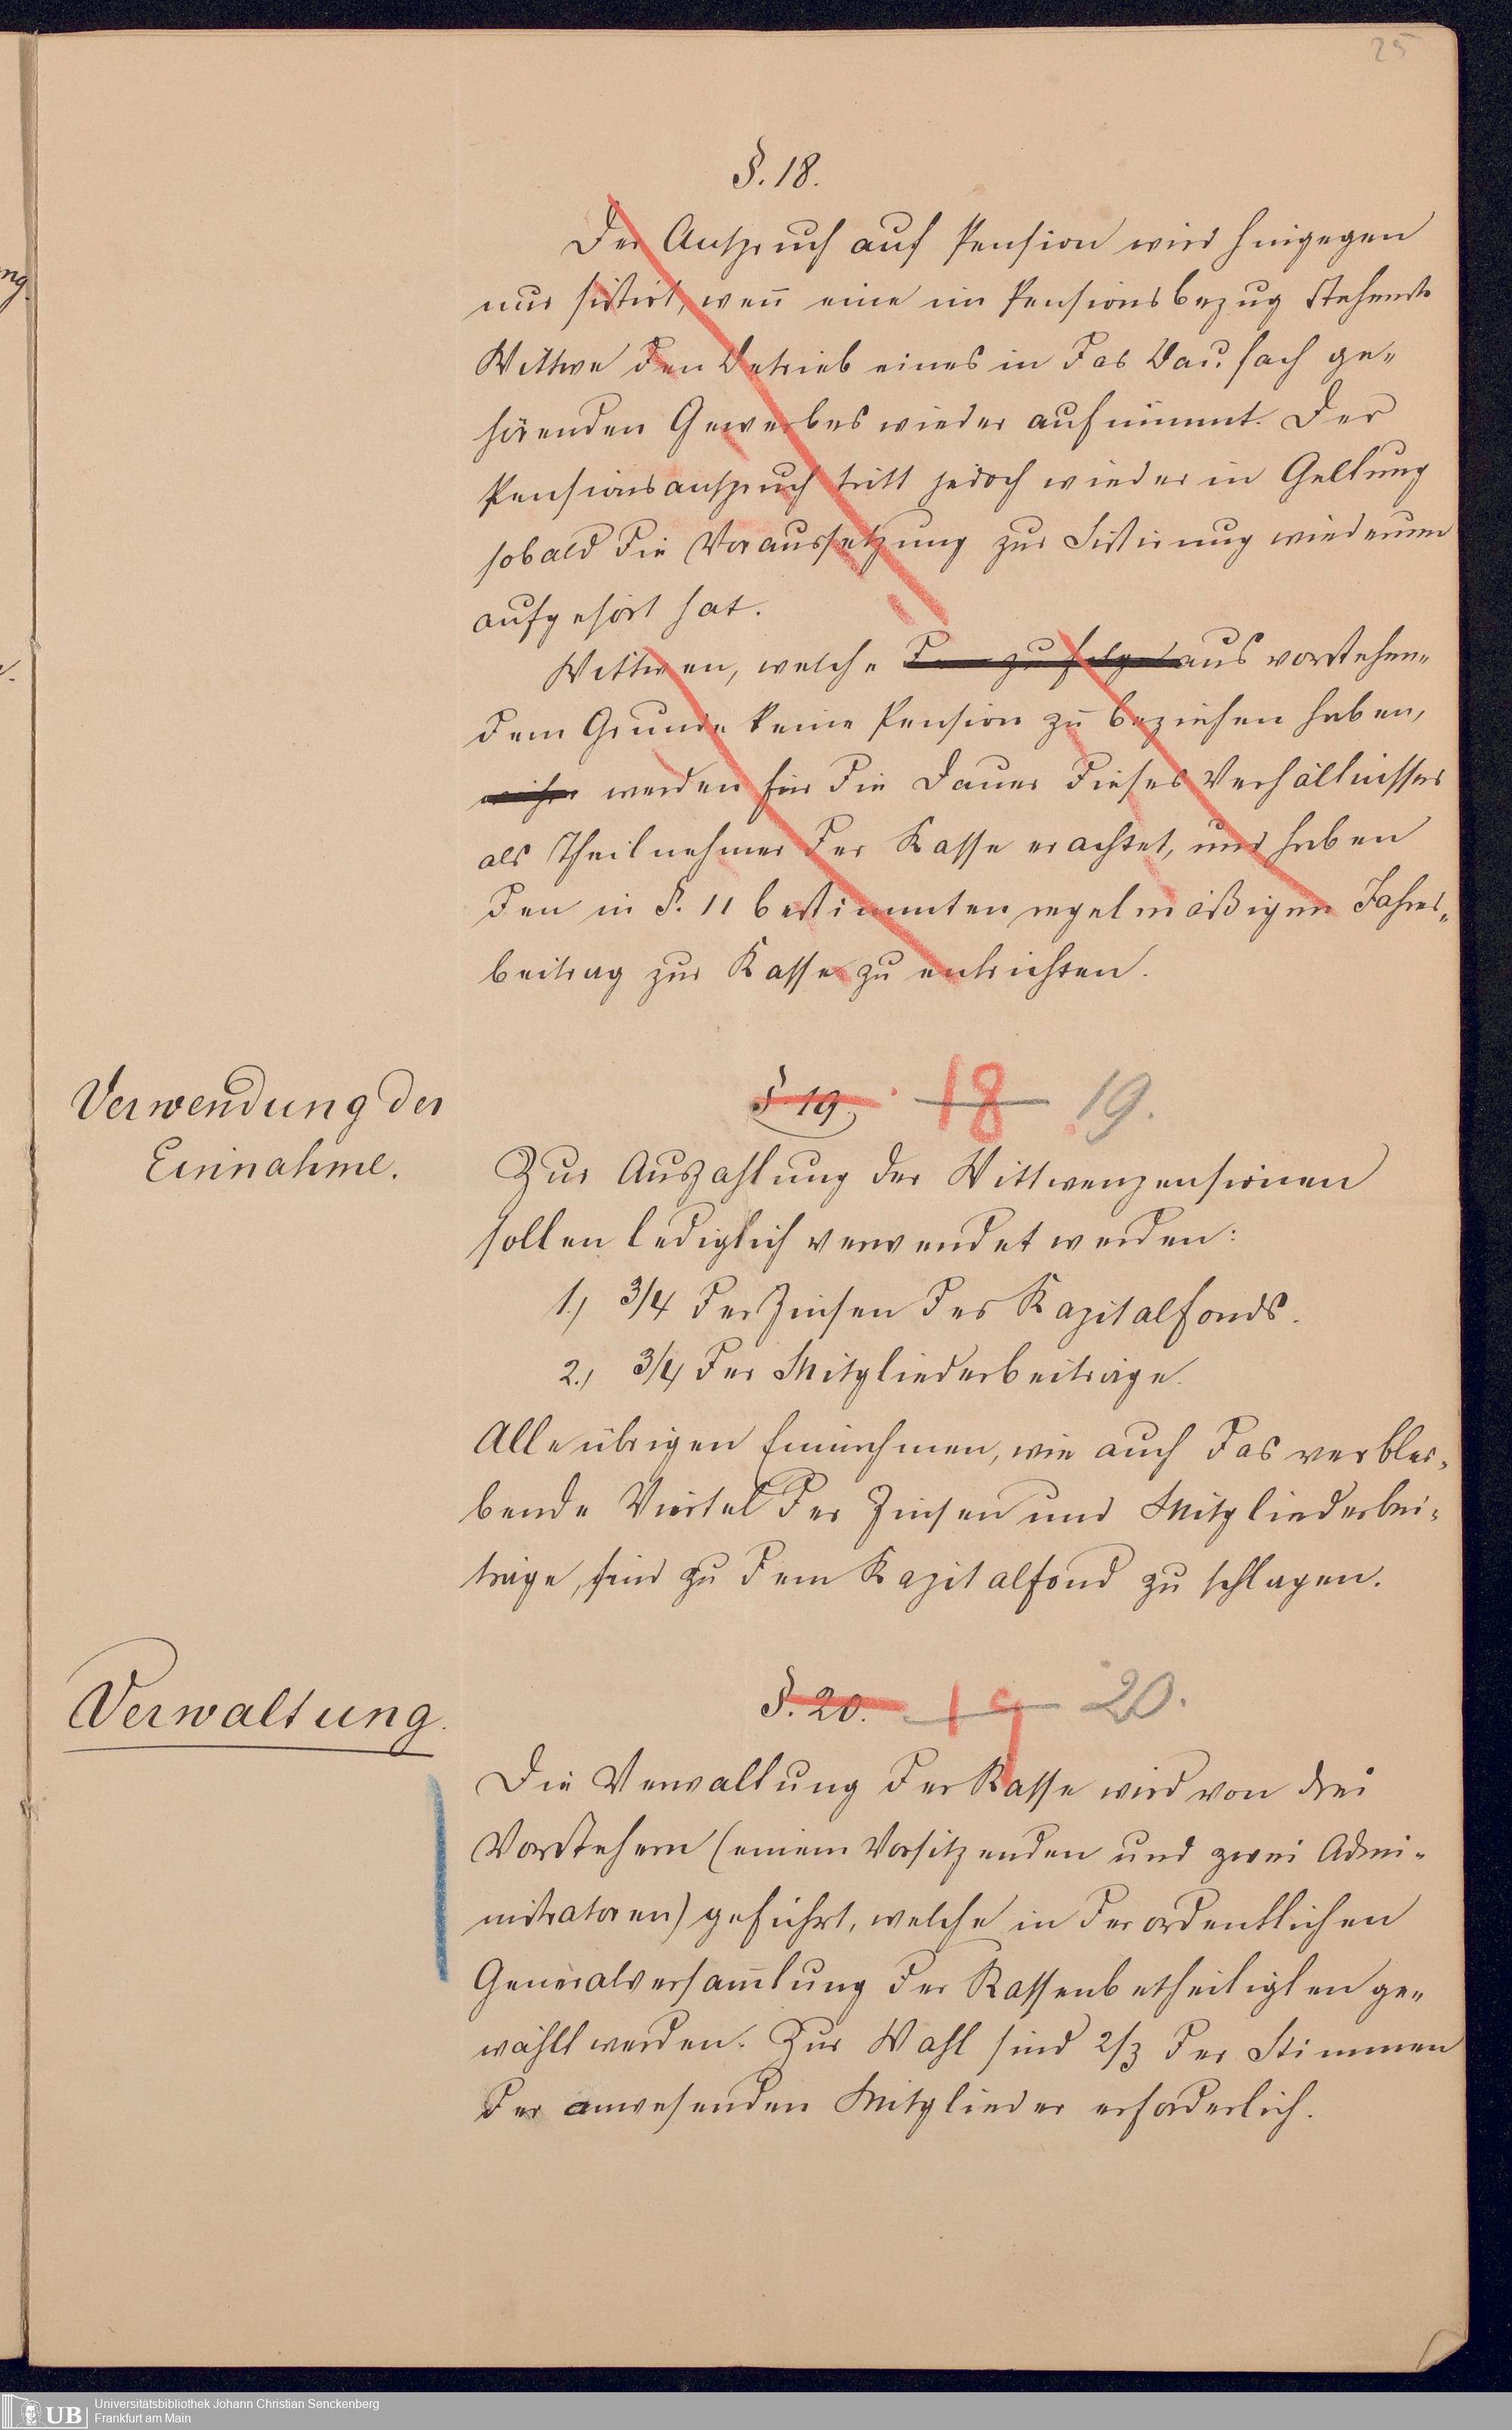 25
§. 18.
Der Anspruch auf Pension wird hingegen
nur sistirt, weñ eine im Pensionsbezug stehende
Wittwe den Betrieb eines in das Baufach ge-
hörenden Gewerbes wieder aufnimmt. Der
Pensionsanspruch tritt jedoch wieder in Geltung
sobald die Voraussetzung zur Sistirung wiederum
aufgehört hat.
Wittwen, welche zufolge aus vorstehen-
dem Grunde keine Pension zu beziehen haben,
werden für die Dauer dieses Verhältnisses
als Theilnehmer der Kasse erachtet, und haben
den in §. 11 bestimmten regelmäßigen Jahres-
beitrag zur Kasse zu entrichten.
Verwendung der
Einnahme.
§. 19. 18 19.
Zur Auszahlung der Wittwenpensionen
sollen lediglich verwendet werden:
1.) 3/4 der Zinsen des Kapitalfonds.
2.) 3/4 der Mitgliederbeiträge.
Alle übrigen Einnahmen, wie auch das verblei-
bende Viertel der Zinsen und Mitgliederbei-
träge, sind zu dem Kapitalfond zu schlagen.
Verwaltung.
§. 20. 19 20.
Die Verwaltung der Kasse wird von drei
Vorstehern (einem Vorsitzenden und zwei Admi-
nistratoren) geführt, welche in der ordentlichen
Generalversam̄lung der Kassenbetheiligten ge-
wählt werden. Zur Wahl sind 2/3 der Stimmen
der anwesenden Mitglieder erforderlich.
UB
Universitätsbibliothek Johann Christian Senckenberg
Frankfurt am Main